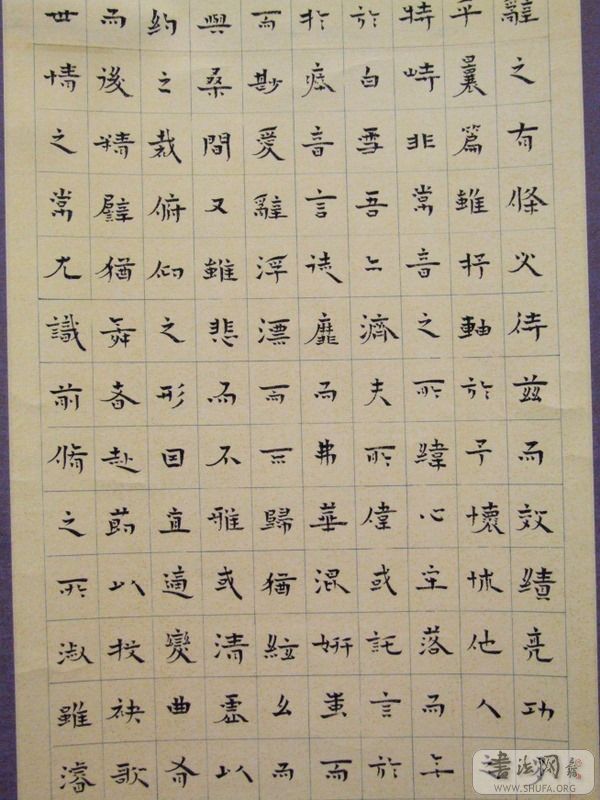 辭之有條必待茲而效績亮功
乎曩篇雖杼軸於予懷怵他人
特峙非常音之所緯心牢落而無
於白雪吾亦濟夫所偉或託言於
於瘁音言徒靡而弗華混妍蚩而
而尠愛辭浮漂而不歸猶絃么而
與桑間又雖悲而不雅或清虛以
約之裁俯仰之形因宜適變曲有
而後精譬猶舞者赴節以投袂歌
世情之常尤識前脩之所淑雖濬
书法网
WWW.SHUFA.ORG